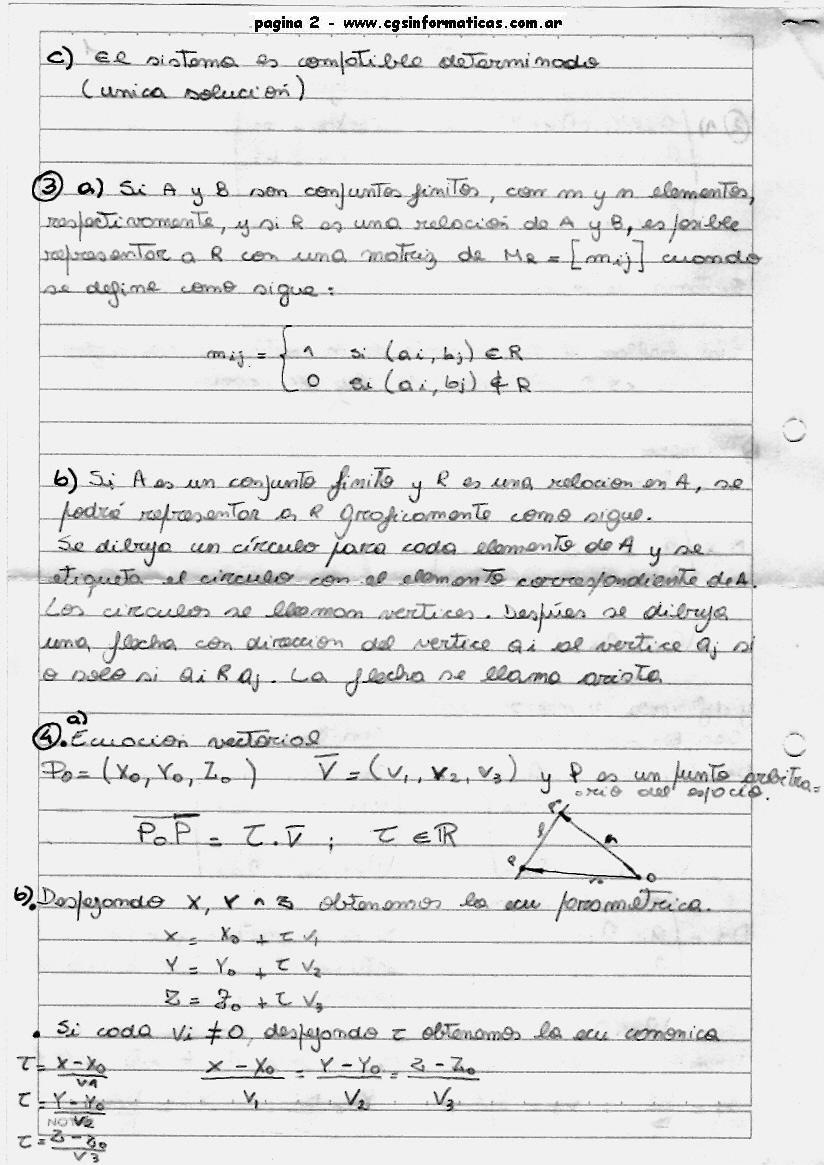 pagina 2 - www.cgsinformaticas.com.ar
c) El sistema es compatible determinado
(unica solución)
③ a) Si A y B son conjuntos finitos, con m y n elementos,
respectivamente, y si R es una relación de A y B, es posible
representar a R con una matriz de MR = [mij] cuando
se define como sigue:
mij = { 1 si (ai, bj) ∈ R
0 si (ai, bj) ∉ R
b) Si A es un conjunto finito y R es una relacion en A, se
podrá representar a R graficamente como sigue.
Se dibuja un círculo para cada elemento de A y se
etiqueta el circulo con el elemento correspondiente de A.
Los circulos se llaman vertices. Despúes se dibuja
una flecha con direccion del vertice ai al vertice aj si
o solo si ai R aj. La flecha se llama arista
④. a) Ecuacion vectorial
P0 = (X0, Y0, Z0) V̅ = (V1, V2, V3) y P es un punto arbitra=
rio del espacio.
P0P = τ . V̅ ; τ ∈ ℝ
b). Despejando X, Y ^ Z obtenemos la ecu parametrica.
X = X0 + τ V1
Y = Y0 + τ V2
Z = Z0 + τ V3
. Si cada Vi ≠ 0, despejando τ obtenemos la ecu cononica
τ = X - X0 / V1
X - X0 / V1 = Y - Y0 / V2 = Z - Z0 / V3
τ = Y - Y0 / V2
τ = Z - Z0 / V3